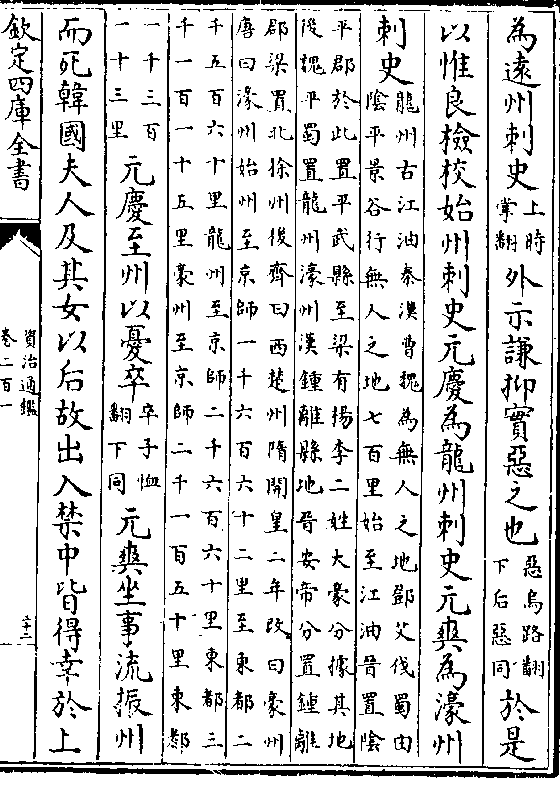 為遠州刺史上時掌翻外示謙抑實惡之也惡烏路翻下后惡同於是
以惟良檢校始州刺史元慶為龍州刺史元爽為濠州
刺史龍州古江油秦漢曹魏為無人之地鄧艾伐蜀由
陰平景谷行無人之地七百里始至江油晉置陰
平郡於此置平武縣至梁有揚李二姓大豪分據其地
後魏平蜀置龍州濠州漢鍾離縣地晉安帝分置鍾離
郡梁置北徐州後齊曰西楚州隋開皇二年改曰豪州
唐曰濠州始州至京師一千六百六十二里至東都二
千五百六十里龍州至京師二千六百六十里東都三
千一百一十五里豪州至京師二千一百五十里東都
一千三百一十三里元慶至州以憂卒卒子恤翻下同元爽坐事流振州
而死韓國夫人及其女以后故出入禁中皆得幸於上
欽定四庫全書
資治通鑑
卷二百一